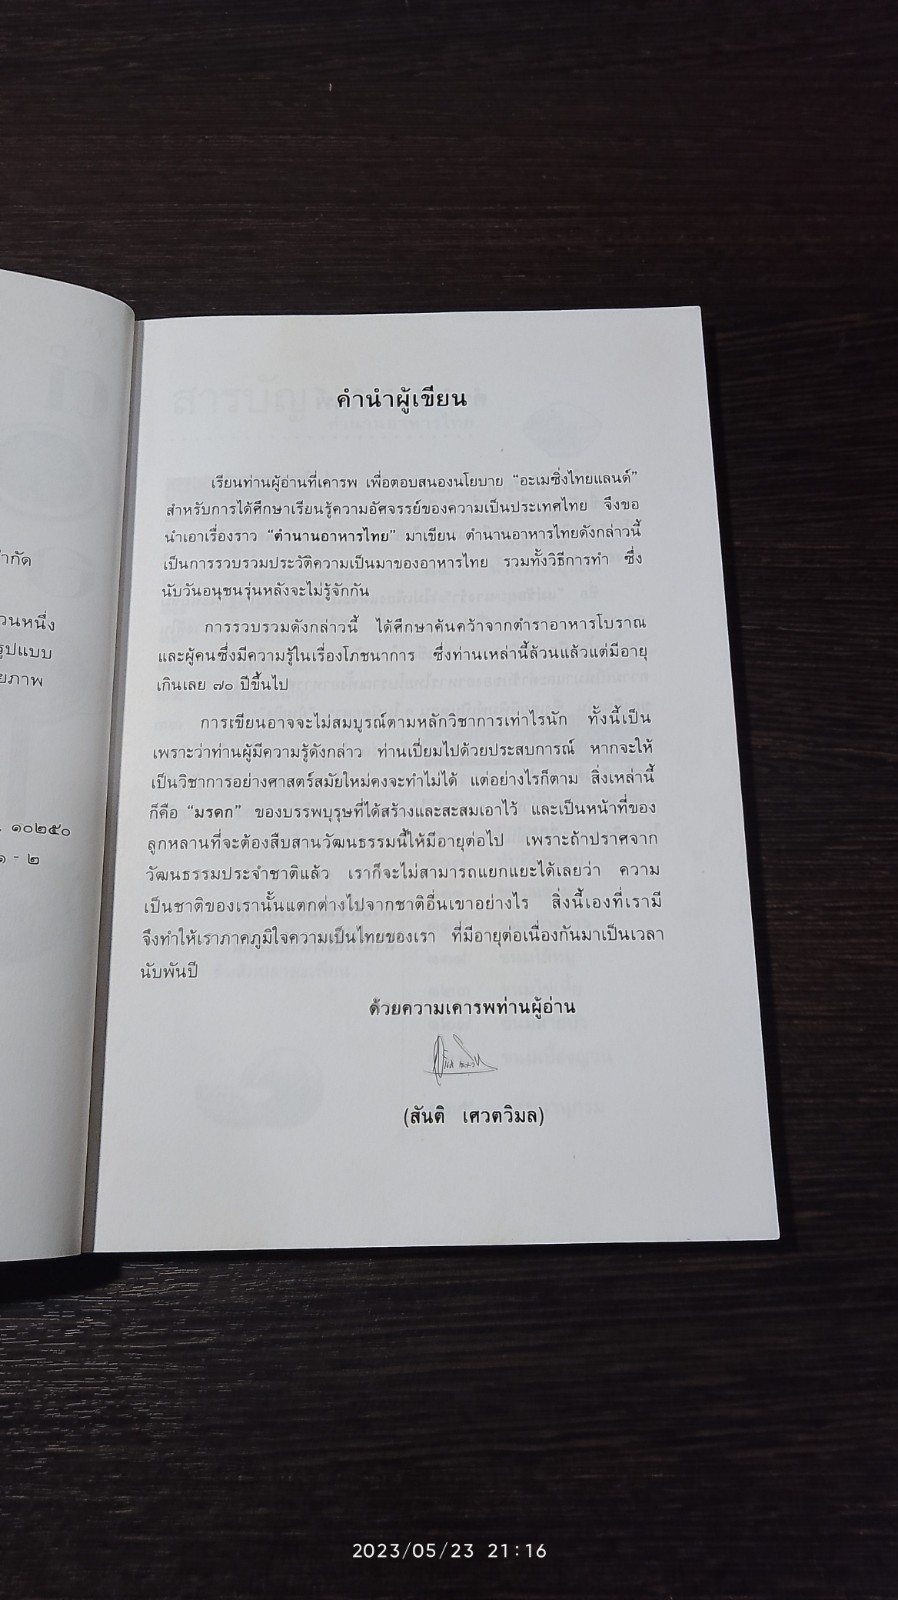 ำกัด
วนหนึ่ง
รูปแบบ
ยภาพ
๑๐๒๕๐
๑ - ๒
คำนำผู้เขียน
เรียนท่านผู้อ่านที่เคารพ เพื่อตอบสนองนโยบาย “อะเมซิ่งไทยแลนด์”
สำหรับการได้ศึกษาเรียนรู้ความอัศจรรย์ของความเป็นประเทศไทย จึงขอ
นำเอาเรื่องราว “ตำนานอาหารไทย” มาเขียน ตำนานอาหารไทยดังกล่าวนี้
เป็นการรวบรวมประวัติความเป็นมาของอาหารไทย รวมทั้งวิธีการทำ ซึ่ง
นับวันอนุชนรุ่นหลังจะไม่รู้จักกัน
การรวบรวมดังกล่าวนี้ ได้ศึกษาค้นคว้าจากตำราอาหารโบราณ
และผู้คนซึ่งมีความรู้ในเรื่องโภชนาการ ซึ่งท่านเหล่านี้ล้วนแล้วแต่มีอายุ
เกินเลย ๗๐ ปีขึ้นไป
การเขียนอาจจะไม่สมบูรณ์ตามหลักวิชาการเท่าไรนัก ทั้งนี้เป็น
เพราะว่าท่านผู้มีความรู้ดังกล่าว ท่านเปี่ยมไปด้วยประสบการณ์ หากจะให้
เป็นวิชาการอย่างศาสตร์สมัยใหม่คงจะทำไม่ได้ แต่อย่างไรก็ตาม สิ่งเหล่านี้
ก็คือ “มรดก” ของบรรพบุรุษที่ได้สร้างและสะสมเอาไว้ และเป็นหน้าที่ของ
ลูกหลานที่จะต้องสืบสานวัฒนธรรมนี้ให้มีอายุต่อไป เพราะถ้าปราศจาก
วัฒนธรรมประจำชาติแล้ว เราก็จะไม่สามารถแยกแยะได้เลยว่า ความ
เป็นชาติของเรานั้นแตกต่างไปจากชาติอื่นเขาอย่างไร สิ่งนี้เองที่เรามี
จึงทำให้เราภาคภูมิใจความเป็นไทยของเรา ที่มีอายุต่อเนื่องกันมาเป็นเวลา
นับพันปี
ด้วยความเคารพท่านผู้อ่าน
(สันติ เศวตวิมล)
2023/05/23 21:16